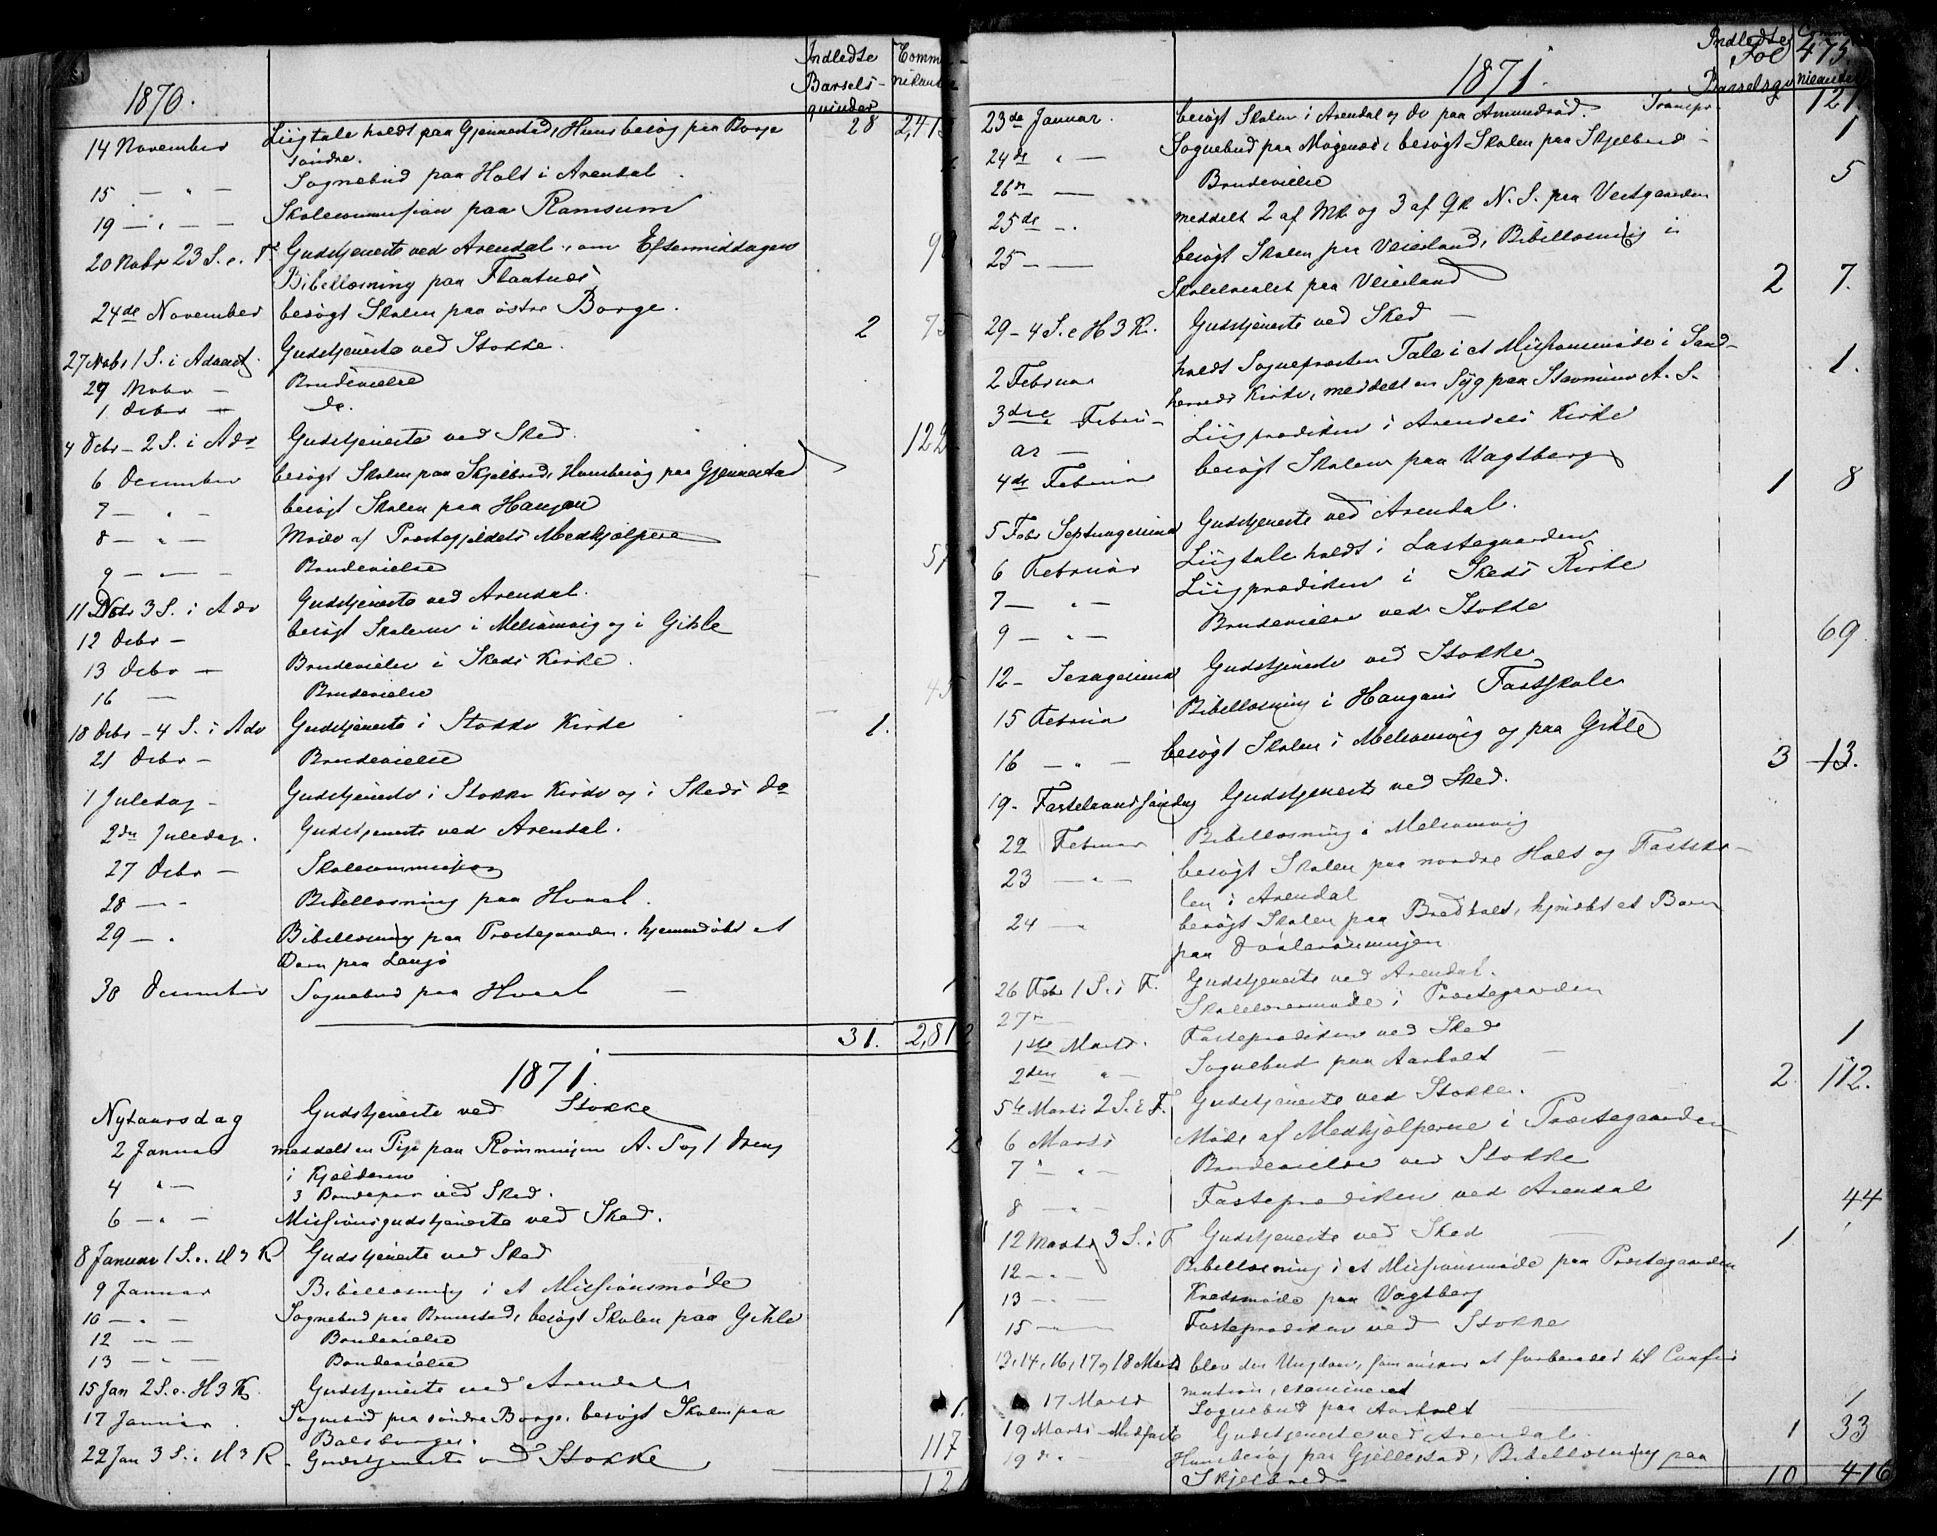 Indledte Comm
Barsels- nikante
qvinder
1870.
14 November Liigtale holdt paa Gjennestad, Huusbesøg paa Borge 28 2,415
søndre.
15 — " — Sognebud paa Holt i Arendal
19 — " — Skolecommission paa Ramsum
20 Nobr 23 S. e. T. Gudstjeneste ved Arendal, om Eftermiddagen
Bibellæsning paa Flaatnes
24de November besøgt Skolen paa østre Borge.
27 Nobr 1 S. i Advent Gudstjeneste ved Stokke. 2 75
29 Nobr — Brudevielse
1 Debr — do.
4 Debr – 2 S. i Adv Gudstjeneste ved Sked. 122
6 December besøgt Skolen paa Skjelbred, Huusbesøg paa Gjennestad
7 — " — besøgt Skolen paa Haugan
8 — " — Møde af Præstegjeldets Medhjælpere
9 — " — Brudevielse
11 Debr 3 S. i Adv Gudstjeneste ved Arendal.
12 Debr — besøgt Skolerne i Melsomvig og i Gikle
13 Debr — Brudevielse i Skeds Kirke.
16 — Brudevielse
18 Debr – 4 S. i Adv Gudstjeneste i Stokke Kirke 1. 45
21 Debr — Brudevielse
1 Juledag — Gudstjeneste i Stokke Kirke og i Skeds do
2den Juledag. Gudstjeneste ved Arendal.
27 Debr — Skolecommission
28 — " Bibellæsning paa Hvaal.
29 — " Bibellæsning paa Præstegaarden, hjemmedøbt et
Barn paa Langø
30 December Sognebud paa Hvaal — 1
31. 2,812
1871.
Nytaarsdag Gudstjeneste ved Stokke
2 Januar meddelt en Pige paa Rømmingen A. S og 1 Dreng
i Kjælderen
4 " — 3 Brudepar ved Sked.
6 — " — Missionsgudstjeneste ved Sked.
8 Januar 1 S. e. H 3 K Gudstjeneste ved Sked
9 Januar Bibellæsning i et Missionsmøde
10 — " — Sognebud paa Brunstad, besøgt Skolen paa Gikle 1
12 — — Brudevielse
13 — " — Brudevielse
15 Jan 2 S. e. H 3 K. Gudstjeneste ved Arendal
17 Januar. Sognebud paa søndre Borge, besøgt Skolen paa 1.
Bolsborge.
22 Jan 3 S. e H 3 K. Gudstjeneste ved Stokke 117
Indledte Fol 475.
Barselsqv nicanter
1871.
23de Januar. besøgt Skolen i Arendal og do paa Amundrød. Transp. 121
24de " — Sognebud paa Mogenes, besøgt Skolen paa Skjelbred — 1
26de — Brudevielse 5
25de — " meddelt 2 af Mk og 3 af Qk N. S. paa Vestgaarden
25 — — besøgt Skolen paa Veierland, Bibellæsning i
Skolelocalet paa Veierland
29 – 4 S. e H 3 K. Gudstjeneste ved Sked — 2 7.
2 Februar holdt Sognepræsten Tale i et Missionsmøde i Sand-
herreds Kirke, meddelt en Syg paa Stavnum A. S. 1.
3die Febru-
ar — Liigprædiken i Arendals Kirke
4de Februar besøgt Skolen paa Vagtsberg
5 Febr Septuagesima Gudstjeneste ved Arendal. 1 8
6 Februar Liigtale holdt i Lastegaarden
7 — " — Liigprædiken i Skeds Kirke
9 — " — Brudevielse ved Stokke
12 – Sexagesima Gudstjeneste ved Stokke 69
15 Februar Bibellæsning i Haugans Fastskole
16 — " — besøgt Skolen i Melsomvig og paa Gikle
19 – Fastelavnssøndag Gudstjeneste ved Sked. 3 13.
22 Februar Bibellæsning i Melsomvig
23 — " — besøgt Skolen paa nordre Holt og Fastsko-
len i Arendal
24 — " besøgt Skolen paa Bredholt, hjmdøbt et Barn
paa
26 Febr 1 S. i F. Gudstjeneste ved Arendal.
27 " — Skolelærermøde i Præstegaarden
1ste Marts. Fasteprædiken ved Sked
2den " — Sognebud paa Aarholt — 1
5te Marts 2 S. i F. Gudstjeneste ved Stokke. 2. 112.
6 Marts Møde af Medhjælperne i Præstegaarden
7 " — Brudevielse ved Stokke
8 — " — Fasteprædiken ved Arendal
12 Marts 3 S. i F Gudstjeneste ved Sked — 1 44
12 — " — Bibellæsning i et Missionsmøde paa Præstegaarden
13 — " — Kredsmøde paa Vagtberg
15 — " — Fasteprædiken ved Stokke
13, 14, 16, 17 og 18 Marts blev den Ungdom, som ønsker at forberedes til Confir
mation, examineret
17 Marts Sognebud paa Aarholt — 1
19 Marts Midfaste Gudstjeneste ved Arendal. 1 33
19 de — Huusbesøg paa Gjellestad, Bibellæsning paa
Skjelbred 10 416